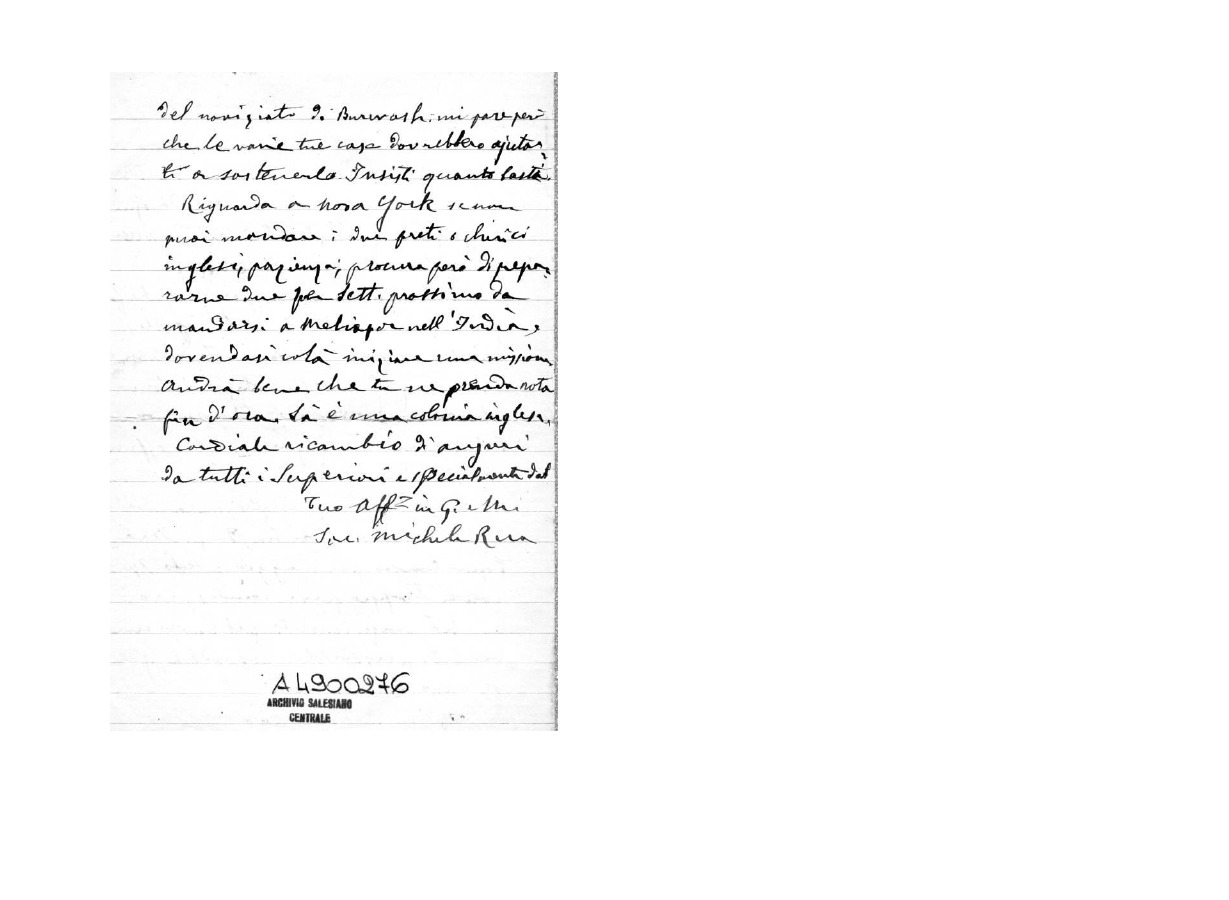 del noviziato di Burwash: mi pare però
che le varie tue case dovrebbero ajutar
ti a sostenerlo. Insisti quanto basta.
Riguardo a Nova York se non
puoi mandare i due preti o chierici
inglesi, pazienza; procura però di prepa-
rarne due per Sett. prossimo da
mandarsi a Meliapor nell'India,
dovendosi colà iniziare una missione
Andrà bene che tu ne prenda nota
fin d'ora. Là è una colonia inglese.
Cordiale ricambio d'auguri
da tutti i Superiori e specialmente dal
Tuo Aff.mo in G. e M.
Sac. Michele Rua
A4900276
ARCHIVIO SALESIANO
CENTRALE